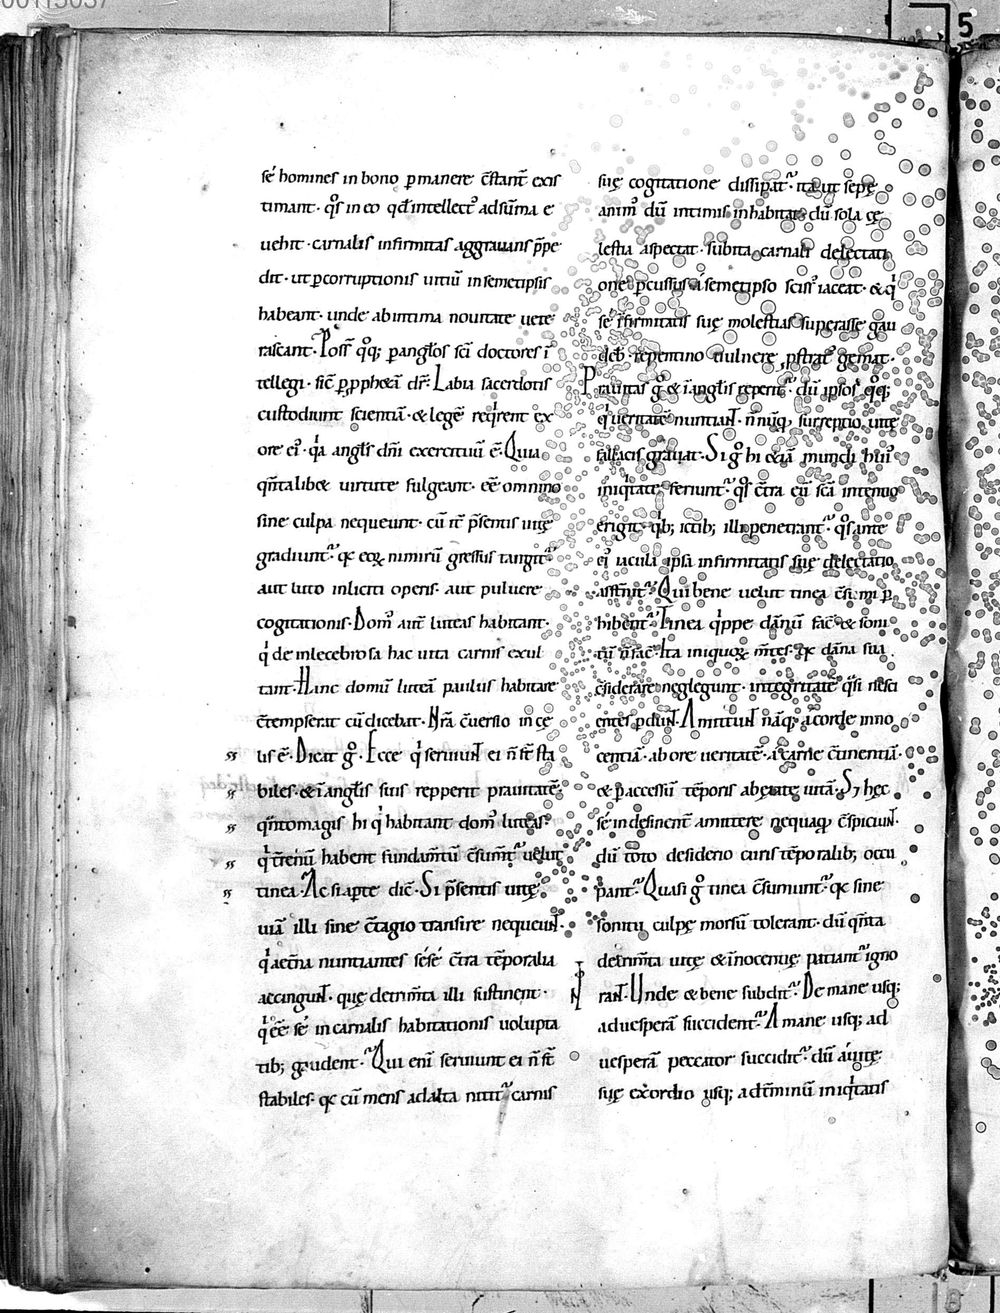 sé homines in bono p̱manere c̄stant̄ exis
timant· q̊s in eo qđ intellect᷒ ad sūma e
uehit· carnalis infirmitas aggrauans p̄pe
dit· ut p̱corruptionis uitiū in semetipsis
habeant· unde ab intima nouitate uete
rascant· Poss̄ q̊q; p̱ angl̄os sc̄i doctores ī
tellegi· sic̄ p̱ p̱ph̄eā dr̄· Labia sacerdotis
custodiunt scientiā· & legē reqͥrent ex
ore ei᷒· qͥa angl̄s dn̄i exercituū ē· Quia
qn̄talib& uirtute fulgeant· eē omnino
sine culpa nequeunt· cū it̄ p̄sentis uitę
gradiunt᷑· qꝛ eoꝝ nimirū gressus tangit᷑
aut luto inliciti operis· aut puluere
cogitationis· Dom᷒ aut̄ luteas habitant·
qͥ de inlecebrosa hac uita carnis exul
tant· Hanc domū luteā paulus habitare
c̄tempserat cū dicebat· Nr̄a c̄uersio in cę
lis ē· Dicat g̊· Ecce qͥ seruiuɴt ei n̄ st̄ sta
biles· & ī angl̄is suis repperit prauitatē·
qn̄tomagis hi qͥ habitant dom᷒ luteas·
qͥ t̄renū habent fundam̄tū c̄sum̄t᷑ uelut
tinea· Ac si ap̱te dic̄· Si p̄sentis uitę
uiā illi sine c̄tagio transire nequeuɴt·
qͥ aet̄na nuntiantes sésé c̄tra tēporalia
accinguɴt· quę detrim̄ta illi sustinent·
qͥ eē sé in carnalis habitationis uolupta
tib; gaudent· Qui eni seruiunt ei n̄ st̄
stabiles· qꝛ cū mens ad alta nitit᷑ carnis
suę cogitatione dissipat᷑· ita ut sepę
anim᷒ dū intimis inhabitat· dū sola cę
lestia aspectat· subita carnali delectati
one p̱cussus á semetipso sciss᷒ iaceat· & qͥ
sé īfirmitatis suę molestias superasse gau
deb· repentino uulnere p̱strat᷒ gemat·
Prauitas g̊ & ī angl̄is reperit᷑· dū ipsos q̊q;
qͥ ueritatē nuntiaɴt· n̄ nūq̱ surreptio uitę
fallacis grauat· Si g̊ hi etiā mundi hui᷒
iniqͥtate feriunt᷑· qͦs c̄tra eū sc̄a intentio
erigit· qͥb; ictib; illi penetrant᷑· q̊s ante
ei᷒ iacula ipsa infirmitatis suę delectatio
Qui bene uelut tinea c̄sumi p̱
hibent᷑· Tinea qͥppe dānū fac̄ & soni
tū n̄ fac̄· Ita iniquoꝝ m̄tes· qꝛ dāna sua
c̄siderare neglegunt· integritatē q̄si nesci
entes p̱duɴt· Amittuɴt nāq; a corde inno
centiā· ab ore ueritatē· a carne c̄tinentiā·
& p̱ accessū tēporis ab ętate uitā· Si hęc
sé indesinent̄ amittere nequaq̱ c̄spiciuɴt·
dū toto desiderio curis tēporalib; occu
pant᷑· Quasi g̊ tinea c̄sumunt᷑· qꝛ sine
sonitu culpę morsū tolerant· dū qn̄ta
detrim̄ta uitę & īnocentię patiant᷑ igno
raɴt· Unde & bene subdit᷑· De mane usq;
ad uesperā succident᷑· A mane usq; ad
uesperā peccator succidit᷑· dū á uitę
suę exordio usq; ad t̄minū iniqͥtatis